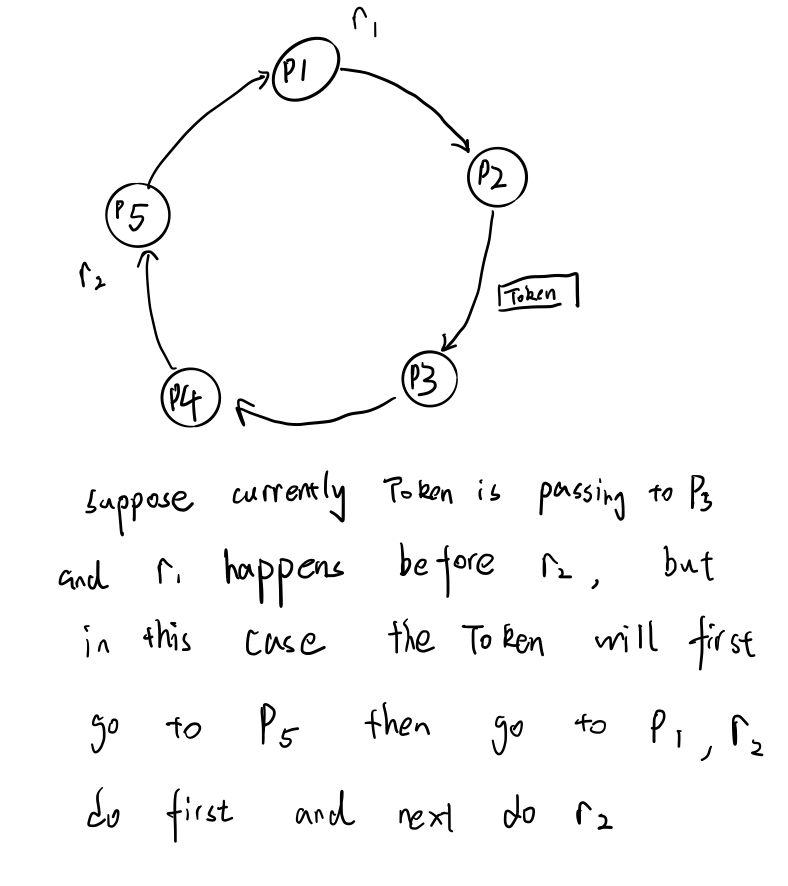 r1
P1
P2
P5
r2
Token
P3
P4
suppose currently Token is passing to P3
and r1 happens before r2, but
in this case the Token will first
go to P5 then go to P1, r2
do first and next do r2